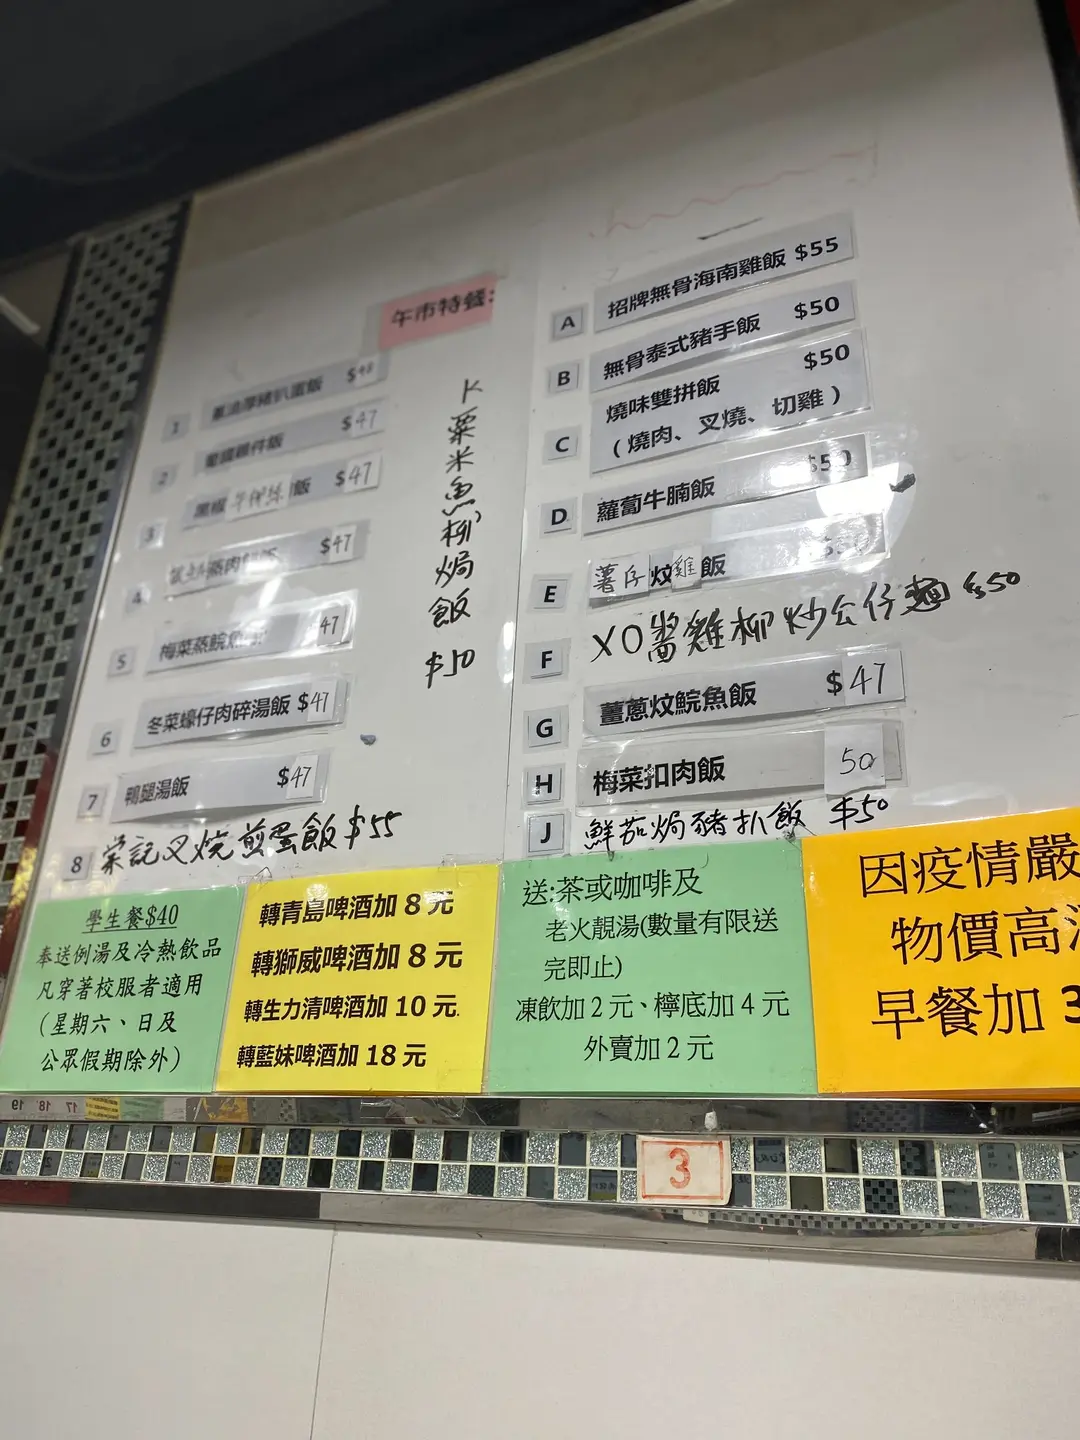 午市特餐:
1
豬扒蛋飯 $48
2
雞件飯 $47
3
黑椒牛柳絲飯 $47
4
蒸肉飯 $47
5
梅菜蒸鯇魚 $47
6
冬菜蠔仔肉碎湯飯 $47
7
鴨腿湯飯 $47
8
叉燒煎蛋飯 $55
K
粟米魚柳焗飯
$50
A
招牌無骨海南雞飯 $55
B
無骨泰式豬手飯 $50
C
燒味雙拼飯 $50
(燒肉、叉燒、切雞)
D
蘿蔔牛腩飯 $50
E
薯仔炆雞飯
F
XO醬雞柳炒公仔麵 $50
G
薑蔥炆鯇魚飯 $47
H
梅菜扣肉飯 50
J
鮮茄焗豬扒飯 $50
學生餐$40
奉送例湯及冷熱飲品
凡穿著校服者適用
(星期六、日及
公眾假期除外)
轉青島啤酒加 8 元
轉獅威啤酒加 8 元
轉生力清啤酒加 10 元.
轉藍妹啤酒加 18 元
送:茶或咖啡及
老火靚湯(數量有限送
完即止)
凍飲加 2 元、檸底加 4 元
外賣加 2 元
因疫情嚴
物價高
早餐加 3
3